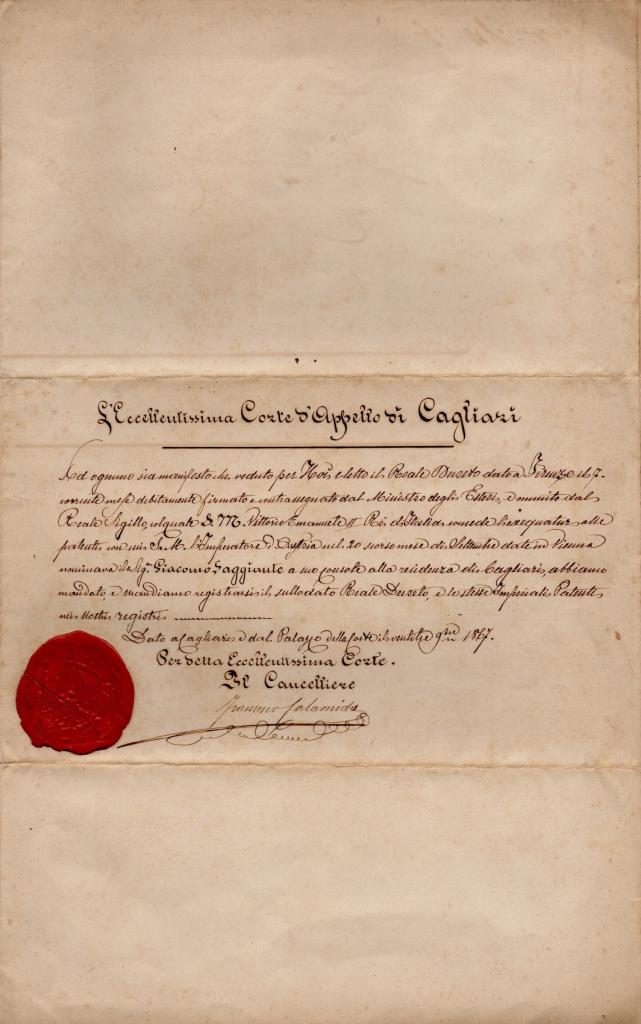 L'Eccellentissima Corte d'Appello di Cagliari
Ad ognuno sia manifesto che veduto per Noi, e letto il Reale Decreto dato a Firenze il 7
corrente mese debitamente firmato e contrassegnato dal Ministro degli Esteri, e munito dal
Reale Sigillo col quale S. M. Vittorio Emanuele II Re d'Italia concede l'exequatur alle
patenti con cui S. M. l'Imperatore d'Austria nel 20 scorso mese di Settembre date in Vienna
nominava il Sigr. Giacomo Faggiante a suo console alla residenza di Cagliari, abbiamo
mandato, e mandiamo registrarsi il sullodato Reale Decreto, e le stesse Imperiali Patenti
nei nostri registri
Dato a Cagliari e dal Palazzo della Corte il 9bre 1867.
Per detta Eccellentissima Corte.
Il Cancelliere
Calamida